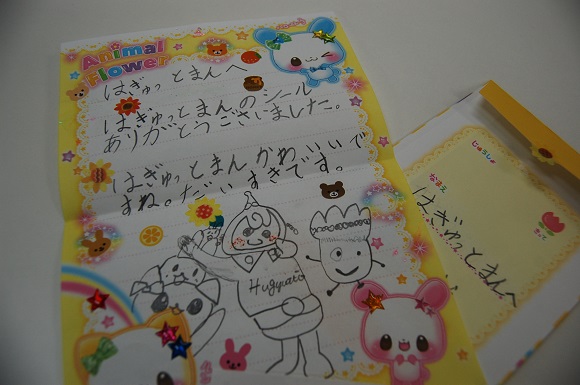 Animal
Flower
はぎゅっとまんへ
はぎゅっとまんのシール
ありがとうございました。
はぎゅっとまんかわいいで
すね。だいすきです。
Hugyutto
じゅうしょ
なまえ
はぎゅっとまんへ
きって